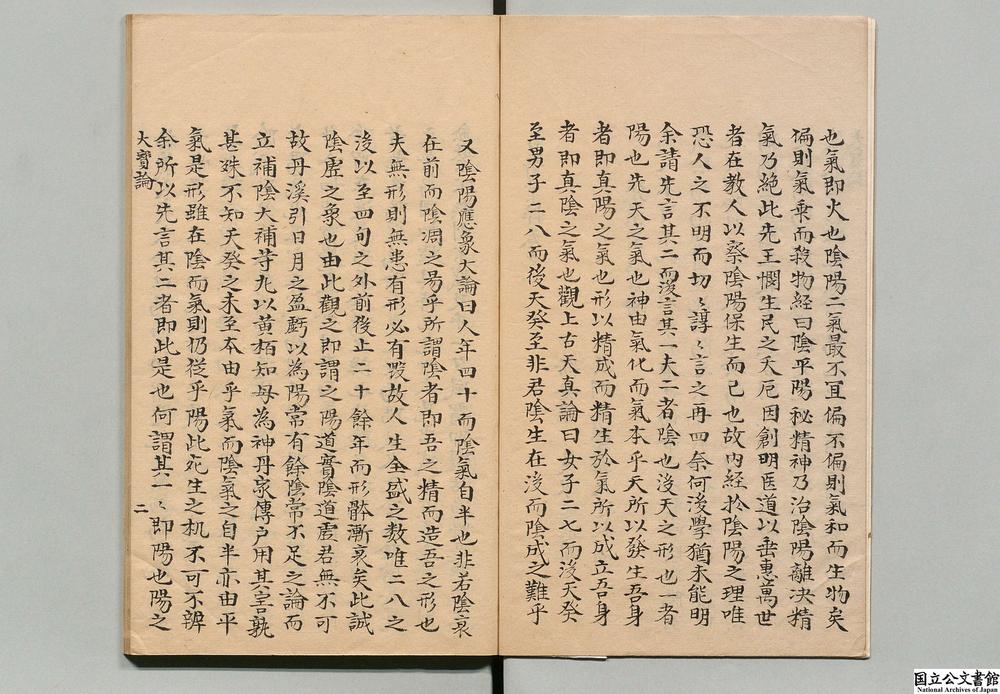 也氣即火也陰陽二氣最不冝偏不偏則氣和而生物矣
偏則氣乖而殺物經曰陰平陽秘精神乃治陰陽離决精
氣乃絕此先王憫生民之夭厄因創明医道以垂惠萬世
者在教人以察陰陽保生而已也故内経於陰陽之理唯
恐人之不明而切〻諄〻言之再四奈何後學猶未能明
余請先言其二而後言其一夫二者陰也後天之形也一者
陽也先天之氣也神由氣化而氣本乎天所以發生吾身
者即真陽之氣也形以精成而精生於氣所以成立吾身
者即真陰之氣也觀上古天真論曰女子二七而後天癸
至男子二八而後天癸至非君陰生在後而陰成之難乎
又陰陽應象大論曰人年四十而陰氣自半也非若陰衰
在前而陰凋之易乎所謂陰者即吾之精而造吾之形也
夫無形則無患有形必有毀故人生全盛之数唯二八之
後以至四旬之外前後止二十餘年而形骵漸衰矣此誠
陰虚之象也由此觀之即謂之陽道實陰道虚君無不可
故丹溪引日月之盈虧以為陽常有餘陰常不足之論而
立補陰大補等丸以黄栢知母為神丹家傳户用其害孰
甚殊不知天癸之未至本由乎氣而陰氣之自半亦由乎
氣是形雖在陰而氣則仍從乎陽此死生之机不可不辨
余所以先言其二者即此是也何謂其一〻即陽也陽之
大寶論
二
国立公文書館
National Archives of Japan